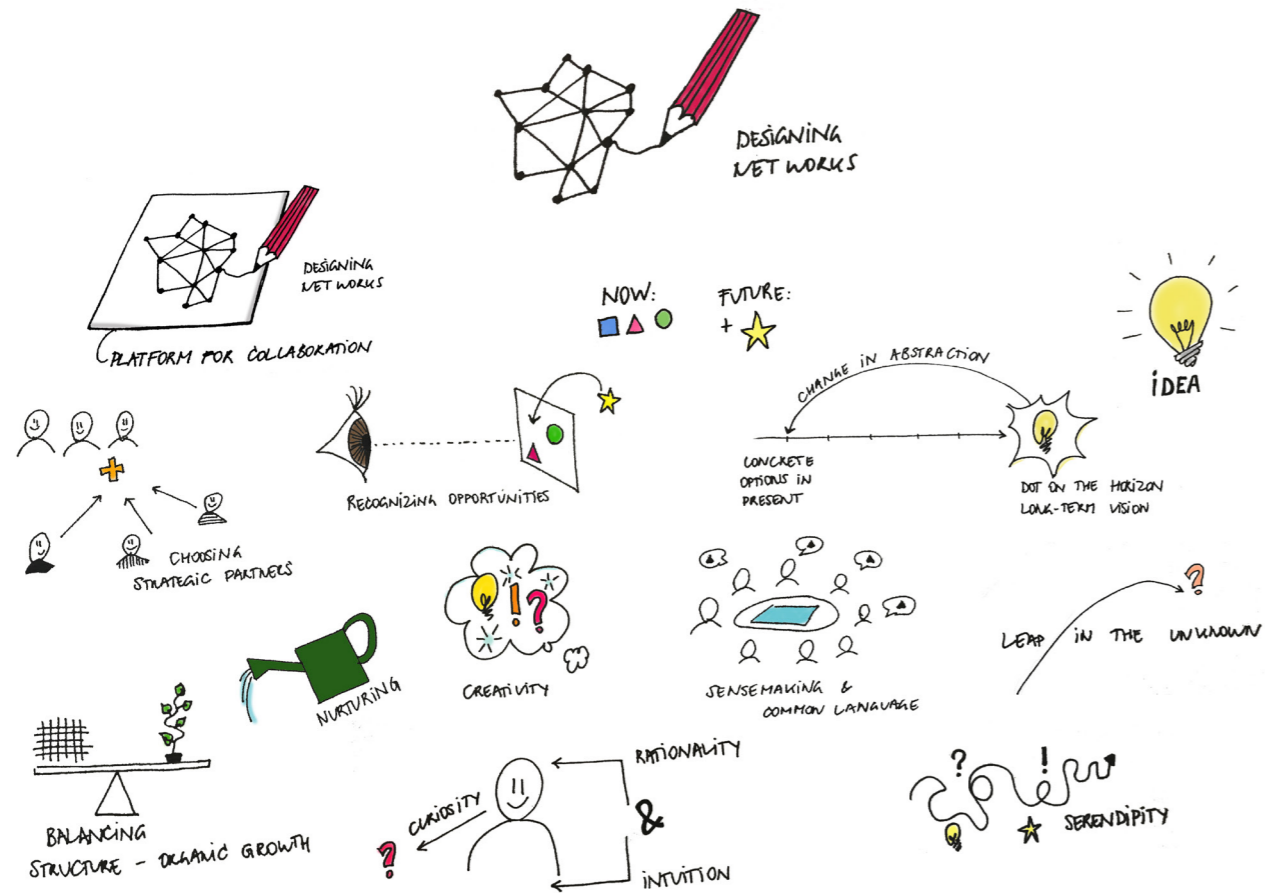 DESIGNING
NETWORKS
DESIGNING
NETWORKS
PLATFORM FOR COLLABORATION
NOW:
FUTURE:
+
IDEA
CHANGE IN ABSTRACTION
CONCRETE
OPTIONS IN
PRESENT
DOT ON THE HORIZON
LONG-TERM VISION
RECOGNIZING OPPORTUNITIES
CHOOSING
STRATEGIC PARTNERS
! ?
CREATIVITY
SENSEMAKING &
COMMON LANGUAGE
?
LEAP IN THE UNKNOWN
NURTURING
BALANCING
STRUCTURE - ORGANIC GROWTH
CURIOSITY
?
RATIONALITY
&
INTUITION
? !
SERENDIPITY